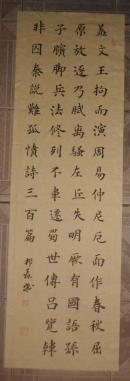 蓋文王拘而演周易仲尼厄而作春秋屈
原放逐乃賦離騷左丘失明厥有國語孫
子臏脚兵法修列不韋遷蜀世傳呂覽韓
非囚秦說難孤憤詩三百篇